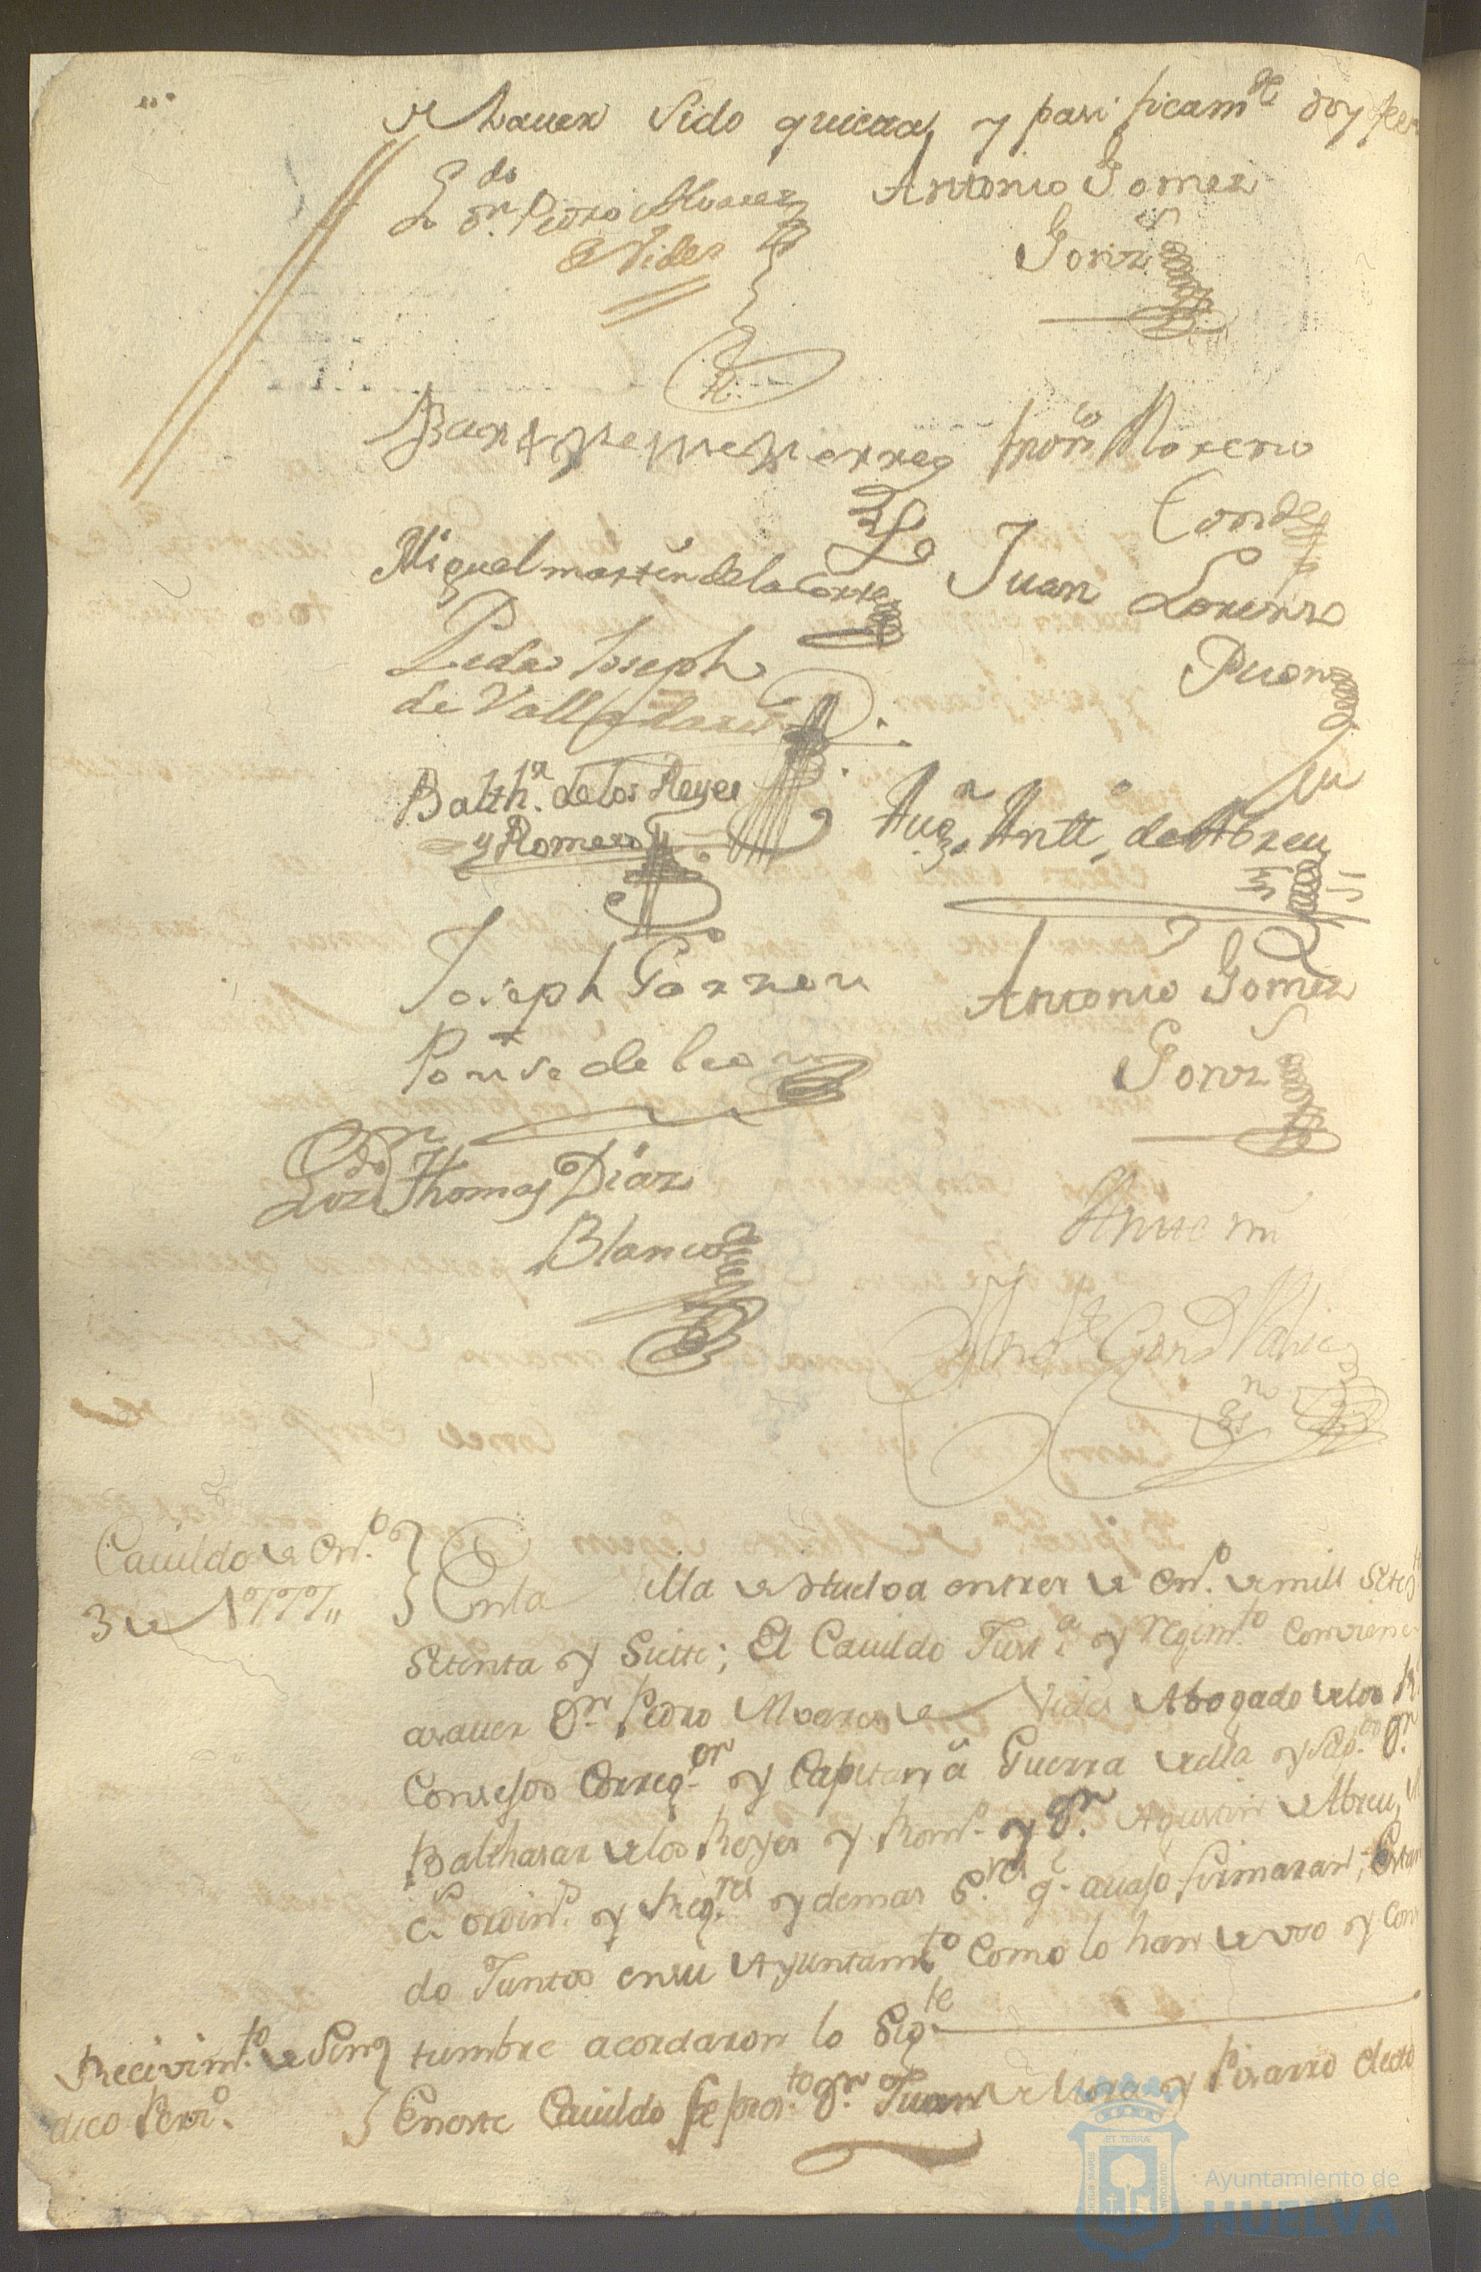 de hauer sido quieta, y pasificam.te doy fee
L.do D.n Pedro Alvarez
de Vides
Antonio Gomez
Gonz.s
Fran.co Moreno
Conde
Miguel martin de la Corte
Juan Lorenzo
Pedro Joseph
de Valladares
Balth.r de los Reyes
y Romero
Aug.n Antt.o de Abreu
Joseph Garzon
Ponse de leon
Antonio Gomez
Gonz.s
Thomas Diaz
Blanco
Ante mi
Cavildo de En.o
3 de 1777
En la Villa de Huelva en tres de En.o de mill Sete
Setenta y Siette; El Cavildo Just.a y Regim.to Conviene
asauer D.n Pedro Alvarez de Vides Abogado de los R.
Consejos Correg.or y Capitan á Guerra de ella D.n
Balthasar de los Reyes y Rom.o y D.n Agustin de Abreu,
ordin.s y Reg.res y demas S.res q.e auajo firmaran, Estan
do Juntos en su Ayuntam.to como lo han de uso y Cos
tumbre acordaron lo Sig.te
Recivim.to de Sin
dico Perr.o
En este Cavildo se pres.to D.n Juan de Mora y Pisarro electo
ET TERRÆ
Ayuntamiento de
HUELVA